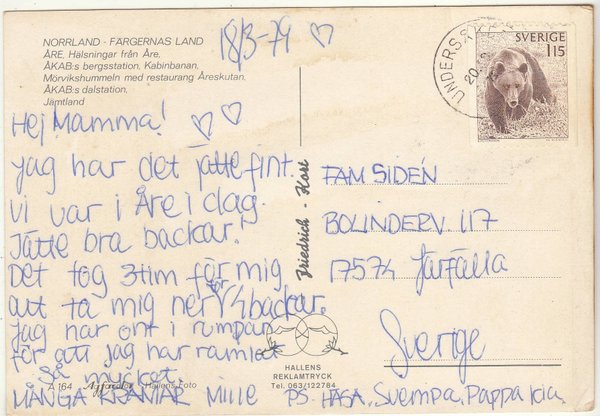 NORRLAND - FÄRGERNAS LAND
ÅRE, Hälsningar från Åre,
ÅKAB:s bergsstation, Kabinbanan,
Mörvikshummeln med restaurang Åreskutan,
ÅKAB:s dalstation,
Jämtland
18/3-79
UNDERSÅKER
20.
SVERIGE
115
Hej Mamma!
jag har det jätte fint.
Vi var i Åre i dag.
Jätte bra backar!
Det tog 3tim för mig
att ta mig ner för 1/2 backar.
Jag har ont i rumpan
för att jag har ramlat
så mycket.
MÅNGA KRAMAR Mille PS. HÄSA, Svempa, Pappa,
FAM SIDÉN
BOLINDERV. 117
17574 Järfälla
Sverige
Friedrich - Kort
HALLENS
REKLAMTRYCK
Tel. 063/122784
A 164 Agfacolor Hallens Foto